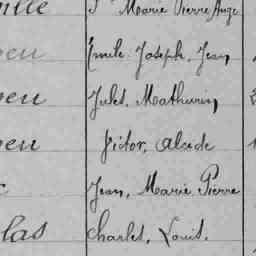 Marie Pierre Ange
Emile, Joseph, Jean
Jules, Mathurin
Victor, Alcide
Jean, Marie Pierre
las Charles, Louis.